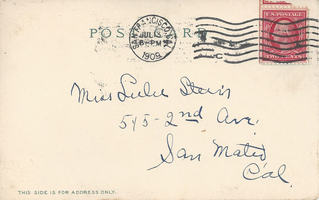 POST CARD
SAN FRANCISCO, CAL.
JUL 13
6-PM
1909
U.S. POSTAGE
TWO CENTS
Miss Lulu
545-2nd Ave.
San Mateo
Cal.
THIS SIDE IS FOR ADDRESS ONLY.